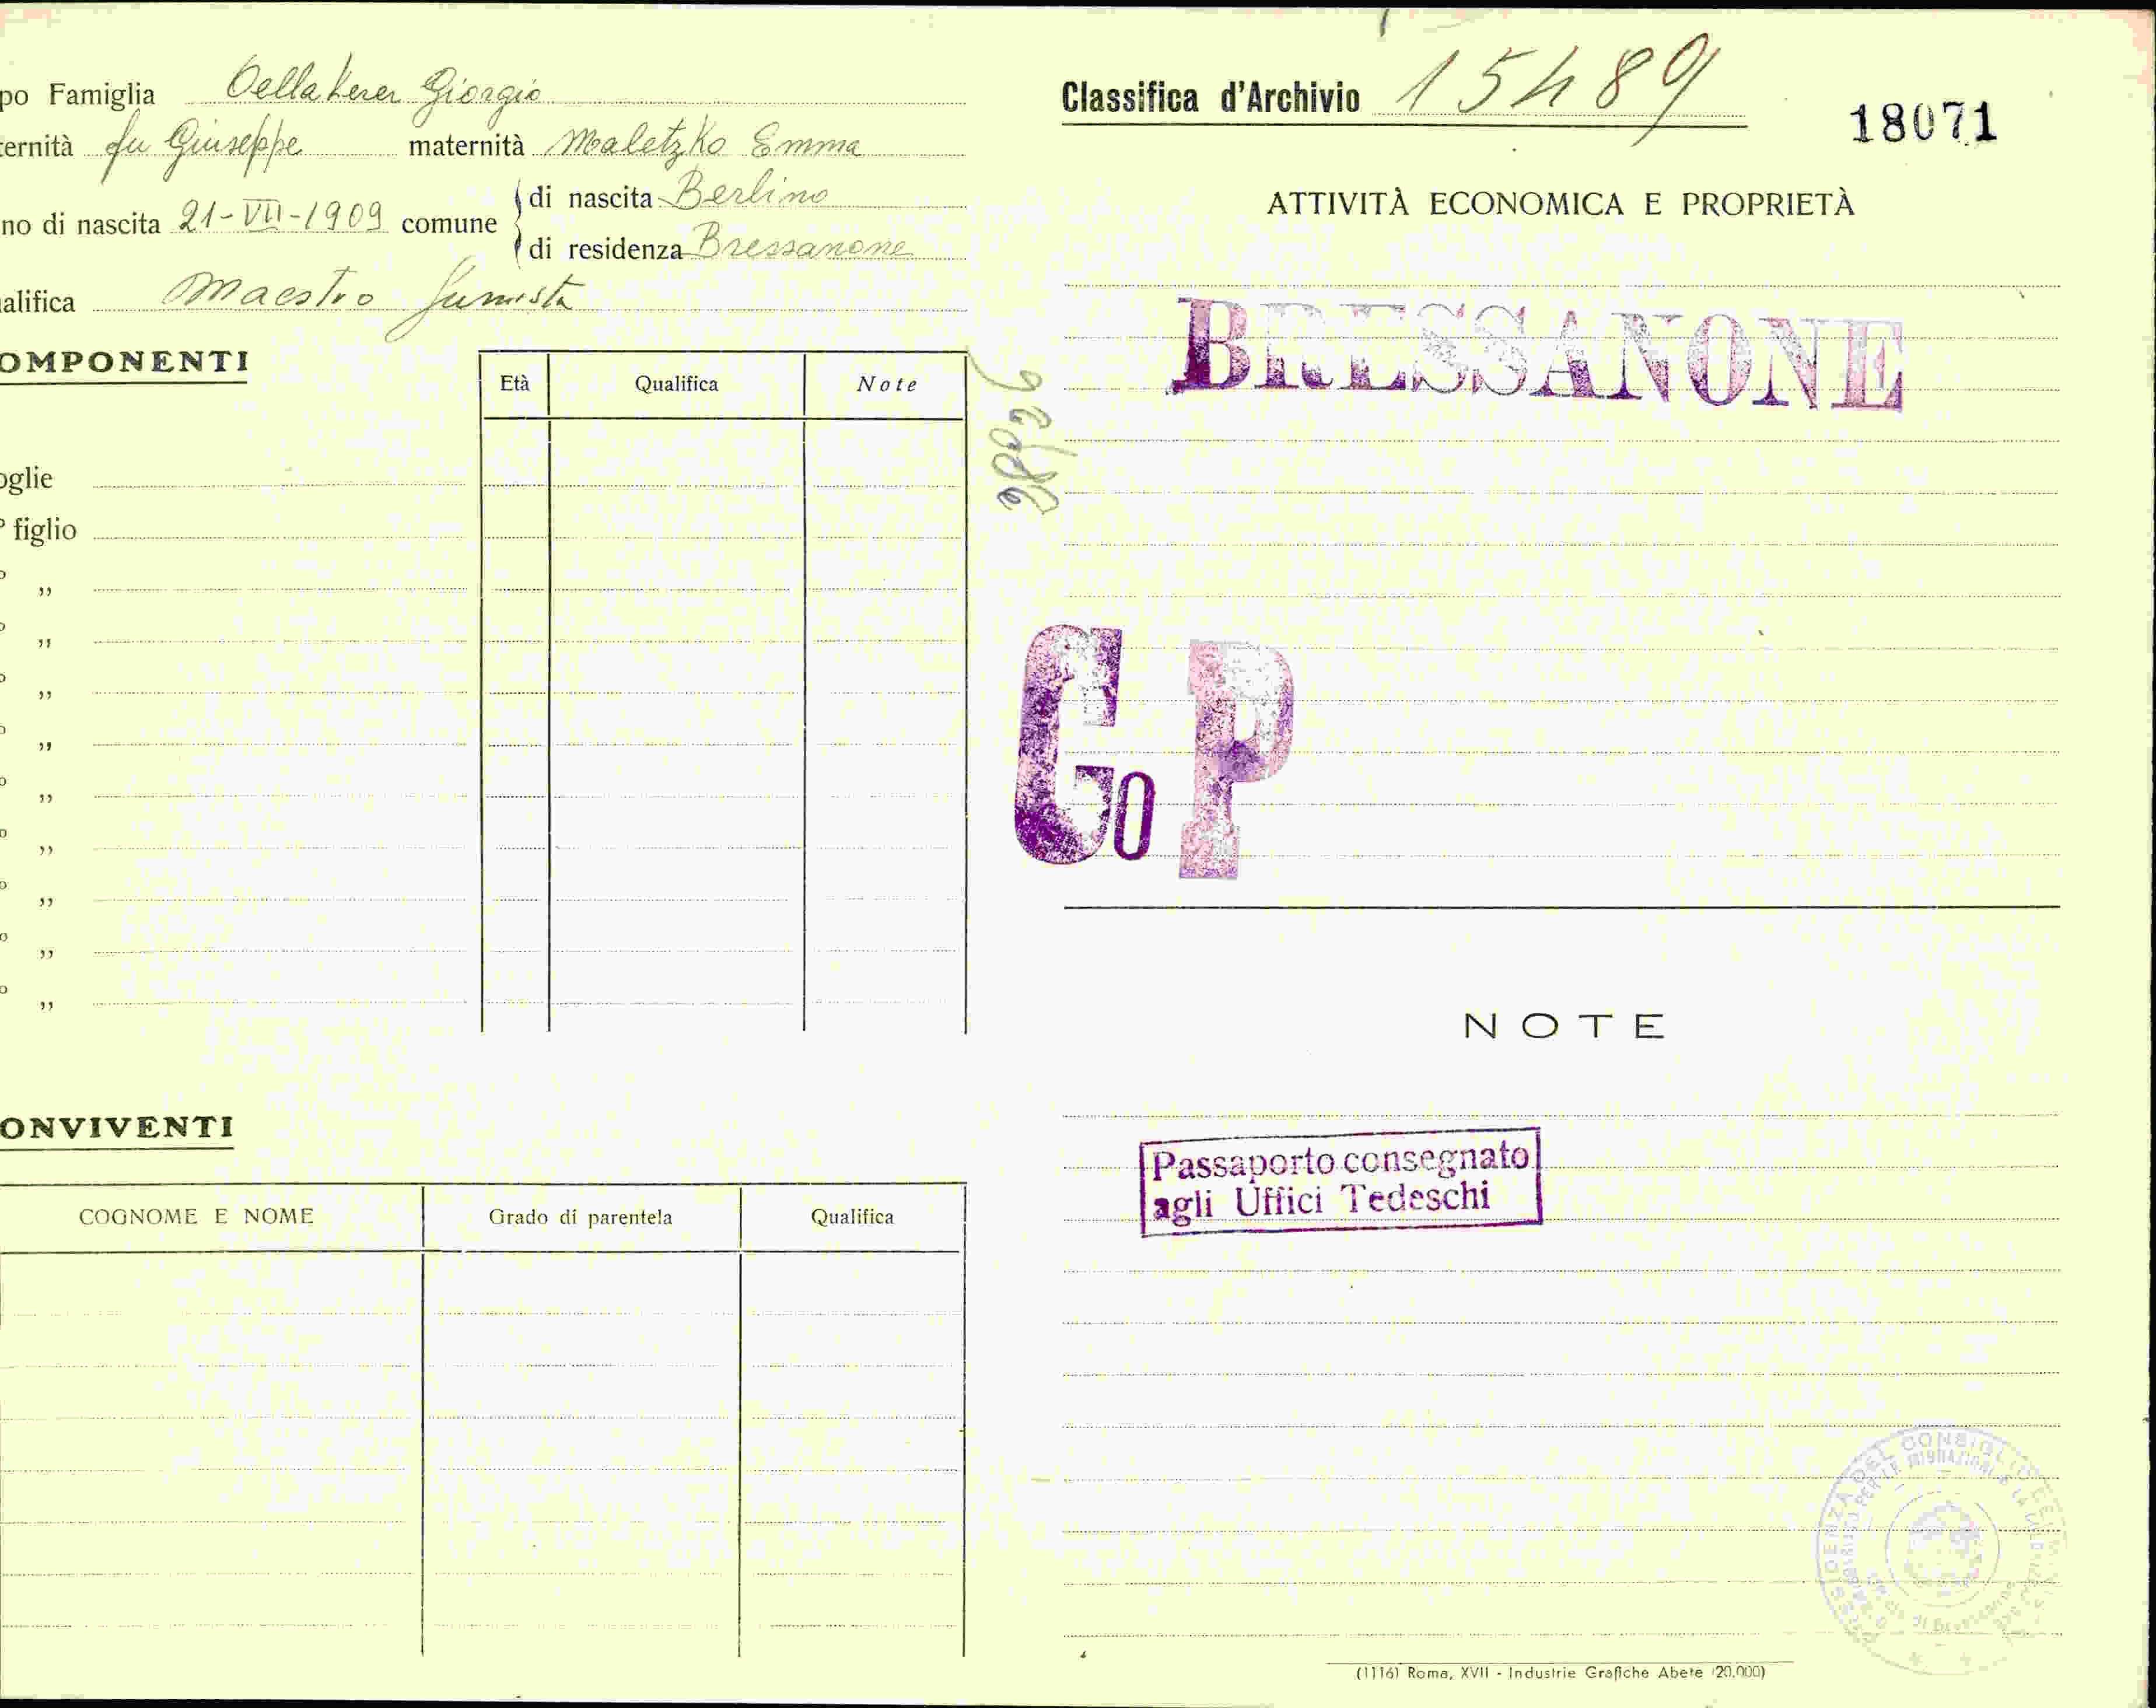 po Famiglia Oellakerer Giorgio
ernità fu Giuseppe maternità Maletzko Emma
no di nascita 21-VII-1909 comune
di nascita Berlino
di residenza Bressanone
alifica Maestro fumista
OMPONENTI
Età Qualifica Note
oglie
figlio
"
"
"
"
"
"
"
"
"
ONVIVENTI
COGNOME E NOME Grado di parentela Qualifica
Classifica d'Archivio 15489
18071
ATTIVITÀ ECONOMICA E PROPRIETÀ
BRESSANONE
Go P
NOTE
Passaporto consegnato
agli Uffici Tedeschi
(1116) Roma, XVII - Industrie Grafiche Abete (20.000)